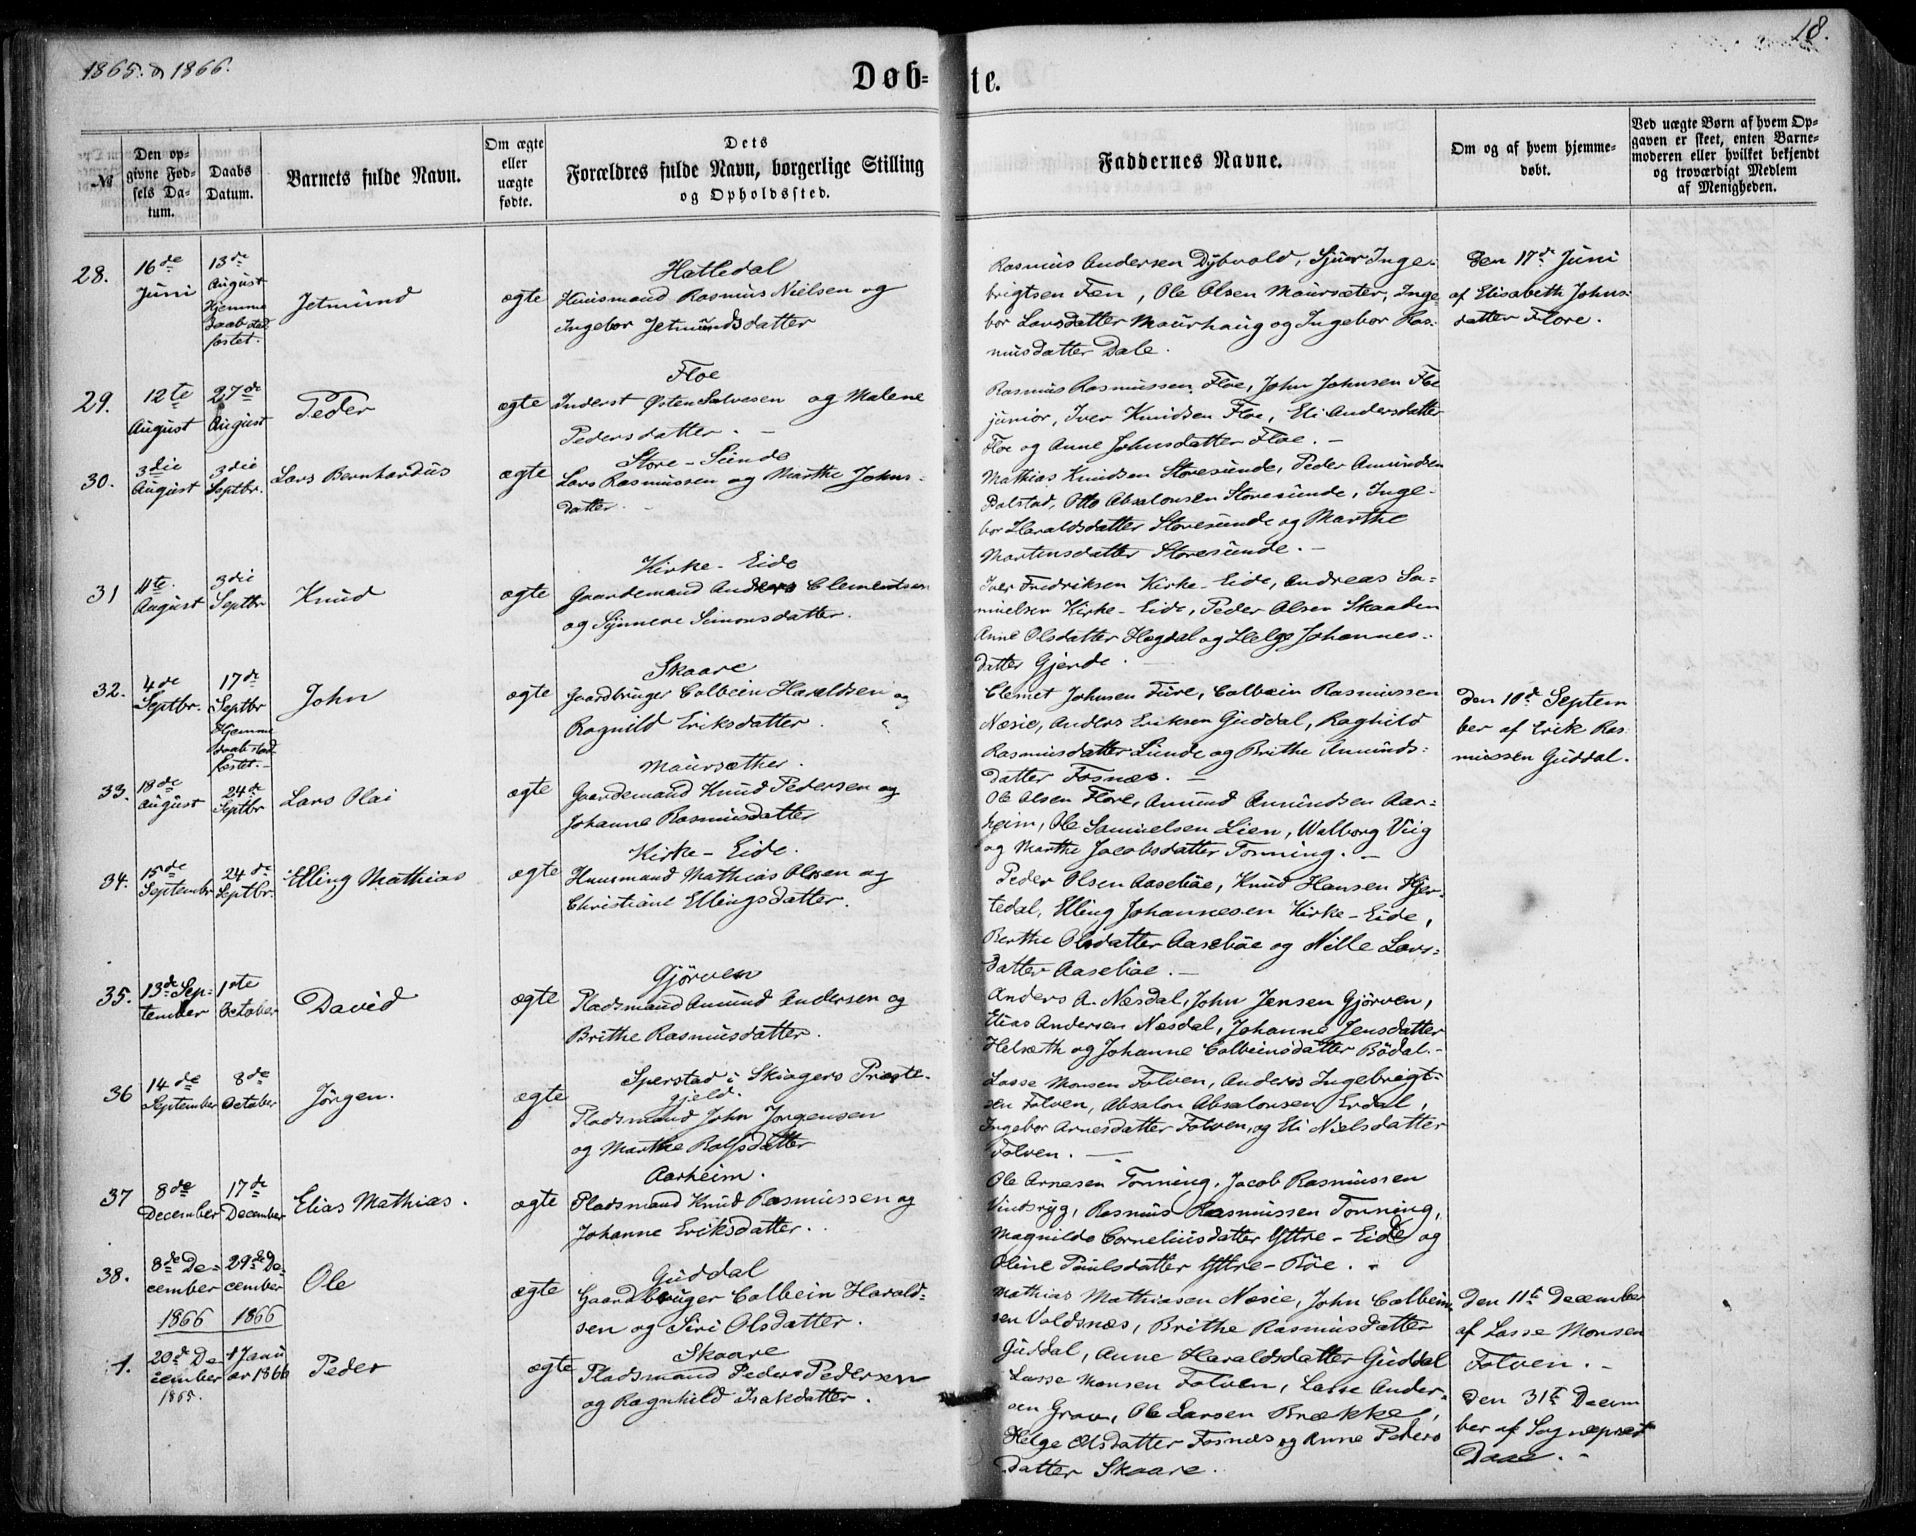 1865 & 1866.
18.
Døb-
te.
№
Den op-
givne Fød-
sels Da-
tum.
Daabs
Datum.
Barnets fulde Navn.
Om ægte
eller
uægte
fødte.
Dets
Forældres fulde Navn, borgerlige Stilling
og Opholdssted.
Faddernes Navne.
Om og af hvem hjemme-
døbt.
Ved uægte Børn af hvem Op-
gaven er skeet, enten Barne-
moderen eller hvilket bekjendt
og troværdigt Medlem
af Menigheden.
28.
16de
Juni
13de
August
Hjemme
daab stad
fæstet.
Jetmund
ægte
Hatledal
Huusmand Rasmus Nielsen og
Ingebor Jetmundsdatter
Rasmus Andersen Dybvold, Sjur Inge-
brigtsen Fæn, Ole Olsen Maursæter, Inge-
bor Larsdatter Maurhaug og Ingebor Ras-
musdatter Dale.
Den 17de Juni
af Elisabeth Johns-
datter Flore.
29.
12te
August
27de
August
Peder
ægte
Floe
Inderst Østen Salvesen og Malene
Pedersdatter. -
Rasmus Rasmussen Floe, John Johnsen Floe
junior, Iver Knudsen Floe, Eli Andersdatter
Floe og Anne Johnsdatter Floe. -
30.
3die
August
3die
Septbr.
Lars Bernhardus
ægte
Store-Sunde
Lars Rasmussen og Marthe Johns-
datter. -
Mathias Knudsen Storesunde, Peder Amundsen
Otto Absalonsen Storesunde, Inge-
bor Haraldsdatter Storesunde og Marthe
Martinsdatter Storesunde. -
31
11te
August
3die
Septbr
Knud
ægte
Kirke-Eide
Gaardemand Anders Clementsen
og Synneve Simonsdatter.
Iver Fredriksen Kirke-Eide, Andreas Sa-
muelsen Kirke-Eide, Peder Olsen Skaaden
Anne Olsdatter Hegdal og Helge Johannes-
datter Gjerde.
32.
4de
Septbr.
17de
Septbr
Hjemme
daab stad
fæstet. -
John
ægte
Skaare
Gaardbruger Colbein Haraldsen og
Ragnild Eriksdatter.
Clemet Johnsen Fure, Colbein Rasmussen
Næsie, Anders Eriksen Guddal, Raghild
Rasmusdatter Sunde og Brithe Amunds-
datter Fosnæs. -
Den 10de Septem
ber af Erik Ras
mussen Guddal.
33.
18de
August
24de
Septbr
Lars Olai
ægte
Maursæther.
Gaardemand Knud Pedersen og
Johanne Rasmusdatter
Ole Olsen Flore, Amund Amundsen Aar-
heim, Ole Samuelsen Lien, Walborg Viig
og Marthe Jacobsdatter Tonning. -
34.
15de
September
24de
Septbr.
Elling Mathias
ægte
Kirke-Eide.
Huusmand Mathias Olsen og
Christiane Ellingsdatter.
Peder Olsen Aaseböe, Knud Hansen Hjer-
tedal, Elling Johannesen Kirke-Eide,
Berthe Olsdatter Aaseböe og Nille Lars-
datter Aaseböe. -
35.
13de Sep-
tember
1ste
October
David
ægte
Gjörven
Pladsmand Amund Andersen og
Brithe Rasmusdatter.
Anders A. Næsdal, John Jensen Gjörven,
Elias Andersen Næsdal, Johanne Jensdatter
Helsæth og Johanne Colbeinsdatter Bödal. -
36
14de
September
8de
October
Jörgen.
ægte
Sperstad i Skiagers Præste-
gjeld.
Pladsmand John Jorgensen
og Marthe Rolfsdatter
Lasse Monsen Folven, Anders Ingebrigt-
sen Folven, Absalon Absalonsen Erdal,
Ingebor Arnesdatter Folven, og Eli Nielsdatter
Folven. -
37
8de
December
17de
December
Elias Mathias.
ægte
Aarheim.
Pladsmand Knud Rasmussen og
Johanne Eriksdatter.
Ole Arnesen Tonning, Jacob Rasmussen
Vindsryg, Rasmus Rasmussen Tonning,
Magnilde Corneliusdatter Yttre-Eide og
Oline Paulsdatter Yttre-Röe. -
38.
8de De-
cember
29de De-
cember
Ole
ægte
Guddal
Gaardbruger Colbein Harald-
sen og Siri Olsdatter.
Mathias Mathiasen Næsie, John Colbein
sen Voldsnæs, Brithe Rasmusdatter
Guddal, Anne Haraldsdatter Guddal
Den 11te December
af Lasse Monsen
Folven. -
1866
1866
1.
20de De-
cember
1865.
1 Janu
ar 1866
Peder
ægte
Skaare
Pladsmand Peder Pedersen
og Ragnhild Isakdatter.
Lasse Monsen Folven, Lasse Ander-
sen Grov, Ole Larsen Brække,
Helge Olsdatter Fosnæs og Anne Peders
datter Skaare.
Den 31te Decem
ber af Sognepræst
Daae. -